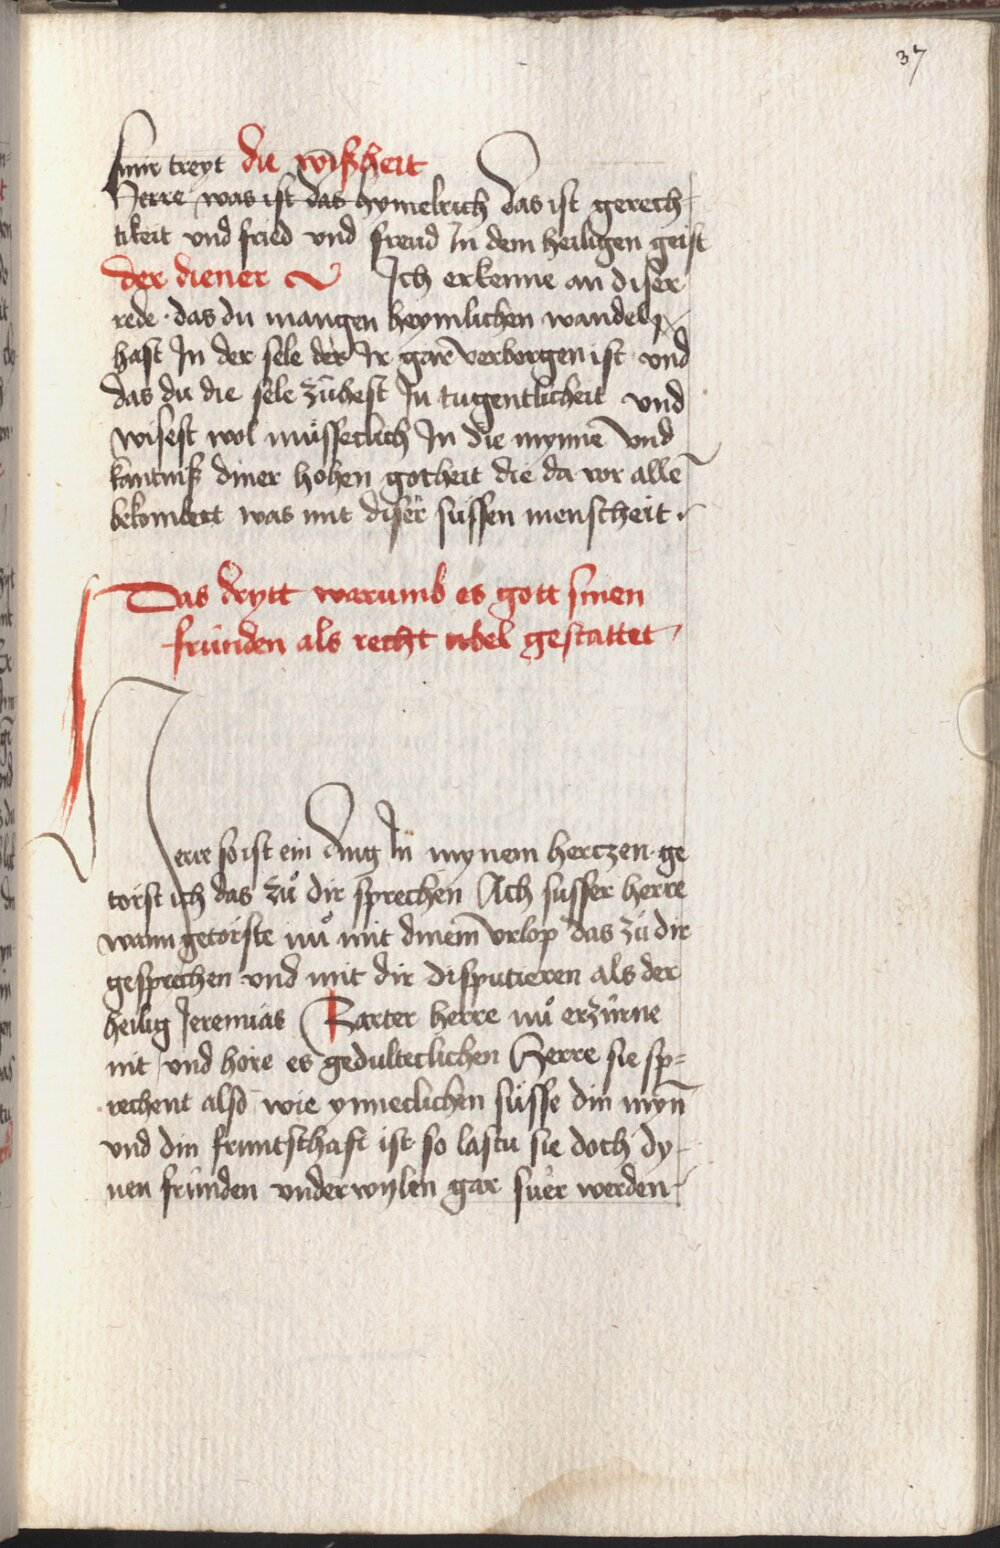 37
sunir treyt die wißheit
Herre was ist das hymelrich das ist gerech-
tikeit vnd fried vnd freud Jn dem heiligen geist
der diener Jch erkenne an diser
rede · das du mangen heymlichen wandel
hast Jn der sele der Jr gar verborgen ist · vnd
das du die sele zühest Jn tugentlicheit vnd
wisest wol müsseclich Jn die mynne vnd
kantniß diner hohen gotheit die da vor alle
bekombert was mit diser süssen menscheit ·
Das drytt warumb es gott sinen
fründen als recht ubel gestattet
Herre so ist ein ding Jn mynem hertzen · ge
törst ich das zuͦ dir sprechen Ach susser herre
wann getörste nuͦ mit dinem vrlop das zu dir
gesprechen vnd mit dir disputieren als der
heilig Jeremias Zarter herre nuͦ erzürne
nit vnd höre es gedulteclichen Herre sie sp=
rechent also wie ynneclichen süsse din myn̄
vnd din fruntschaft ist · so lastu sie doch dy-
nen fründen vnderwylen gar suer werden ·